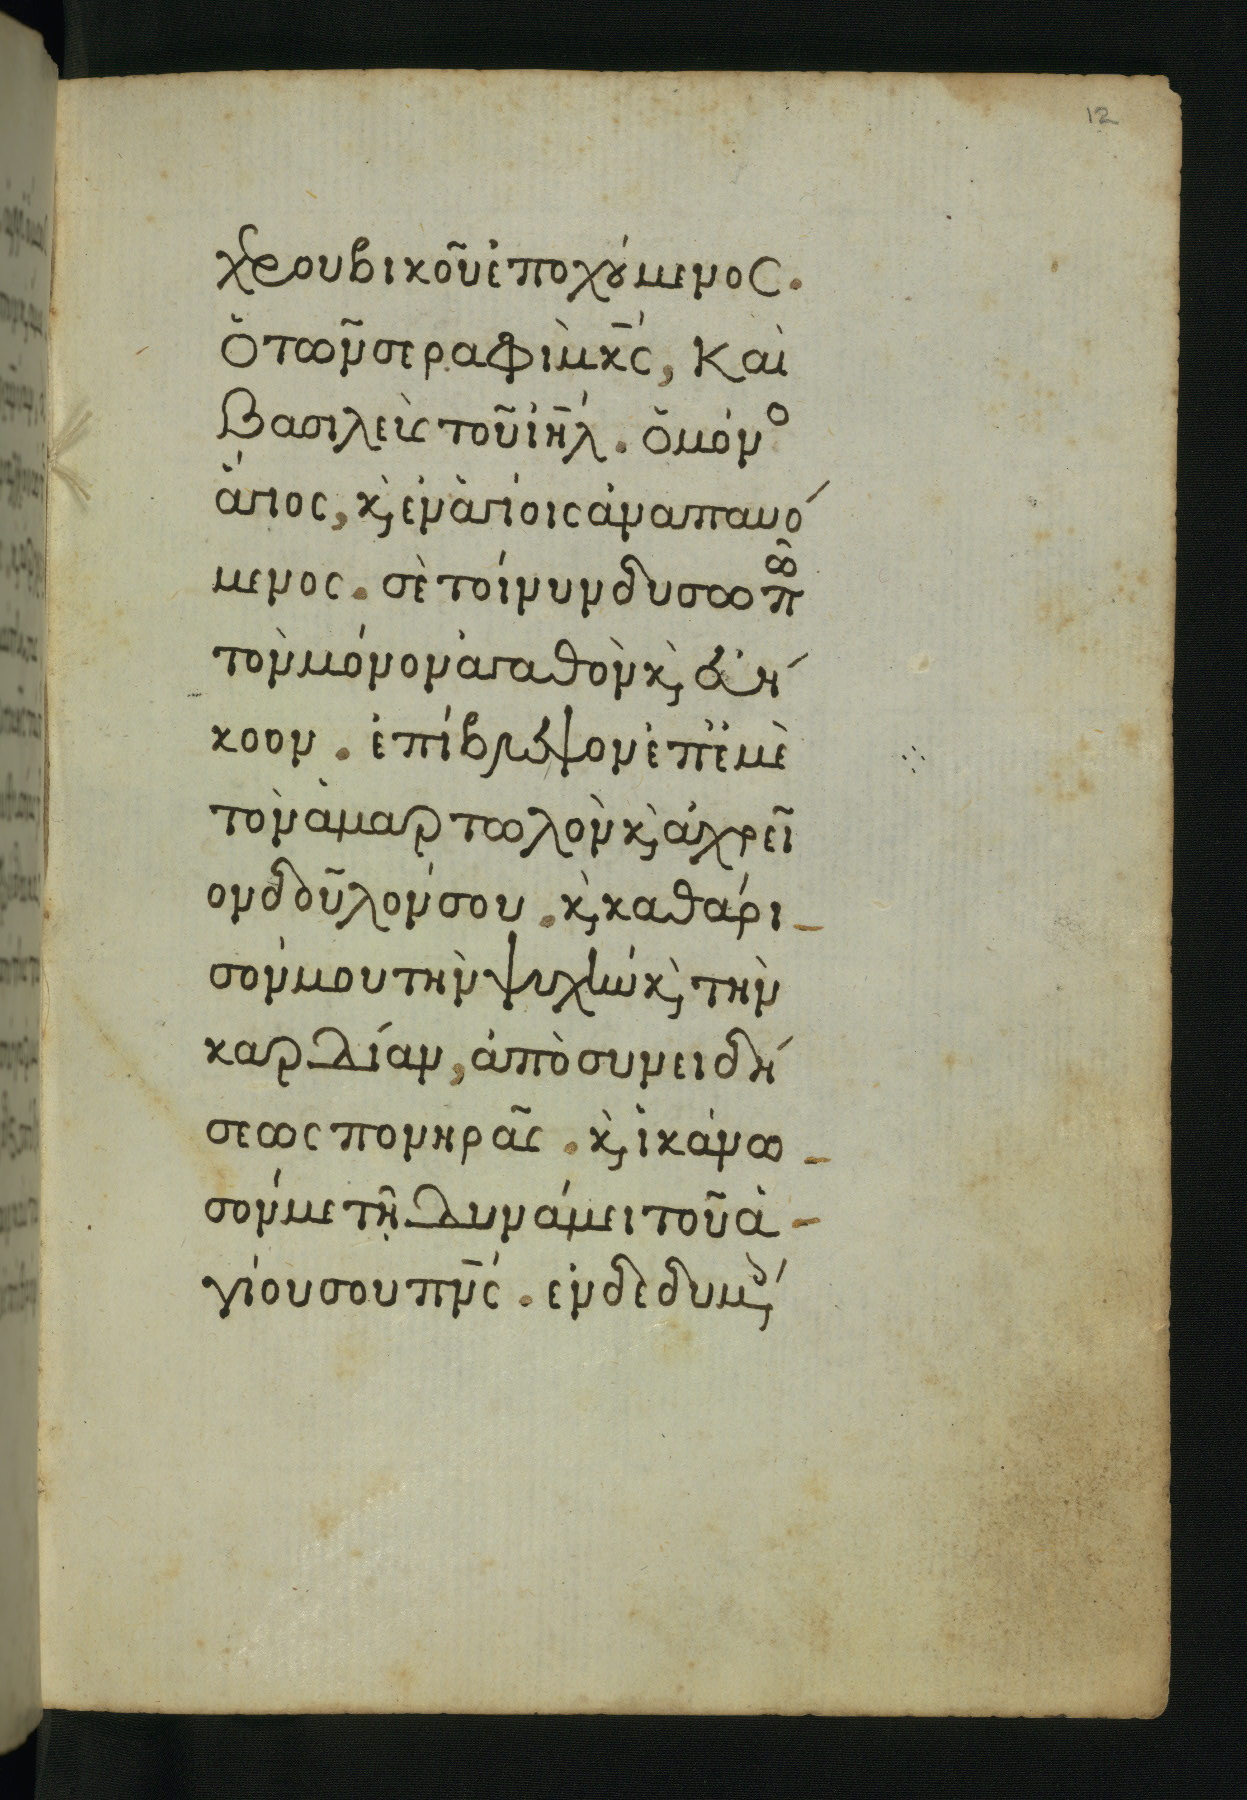 12
χερουβικοῦ ἐποχούμενος.
ὁ τῶν σεραφὶμ κ̅ς̅, καὶ
βασιλεὺς τοῦ ἰη̅λ. ὁ μόνο
ἅγιος, κ̀ ἐν ἁγίοις ἀναπαυό
μενος. σὲ τοίνυν δυσωπῶ
τὸν μόνον ἀγαθὸν κ̀ εὐή
κοον. ἐπίβλεψον ἐπ' ἐμὲ
τὸν ἁμαρτωλὸν κ̀ ἀχρεῖ
ον δοῦλόν σου. κ̀ καθάρι-
σόν μου τὴν ψυχὴν κ̀ τὴν
καρδίαν, ἀπὸ συνειδή
σεως πονηρᾶς. κ̀ ἱκάνω-
σόν με τῇ δυνάμει τοῦ ἁ-
γίου σου πν̅ς. ἐνδεδυμέ